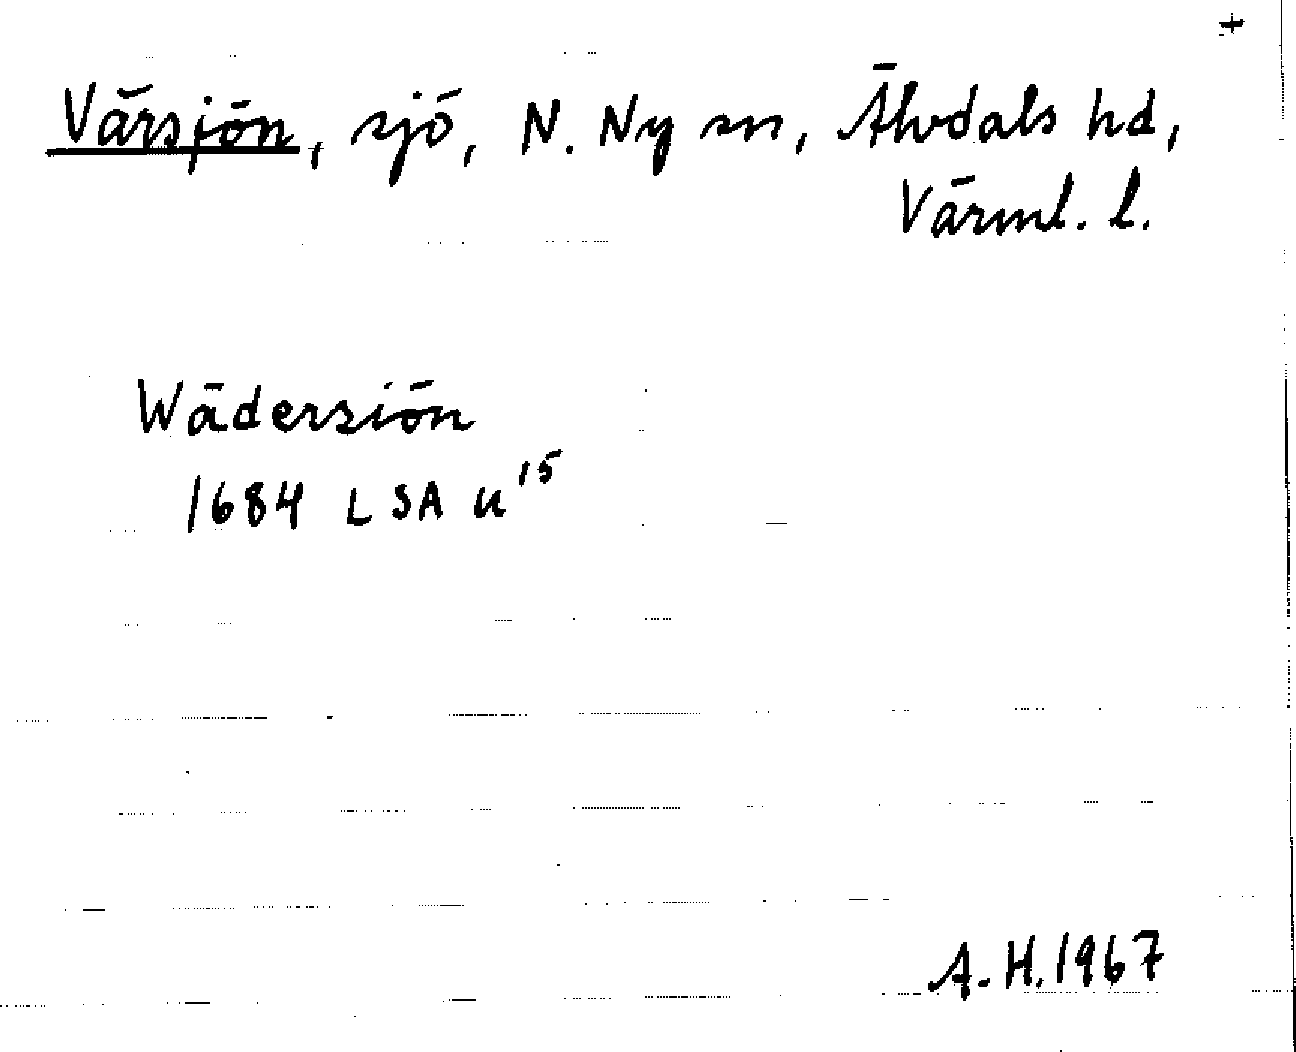 +
Värsjön, sjö, N. Ny sn, Älvdals hd,
Värml. l.
Wädersiön
1684 LSA u¹⁵
A. H. 1967